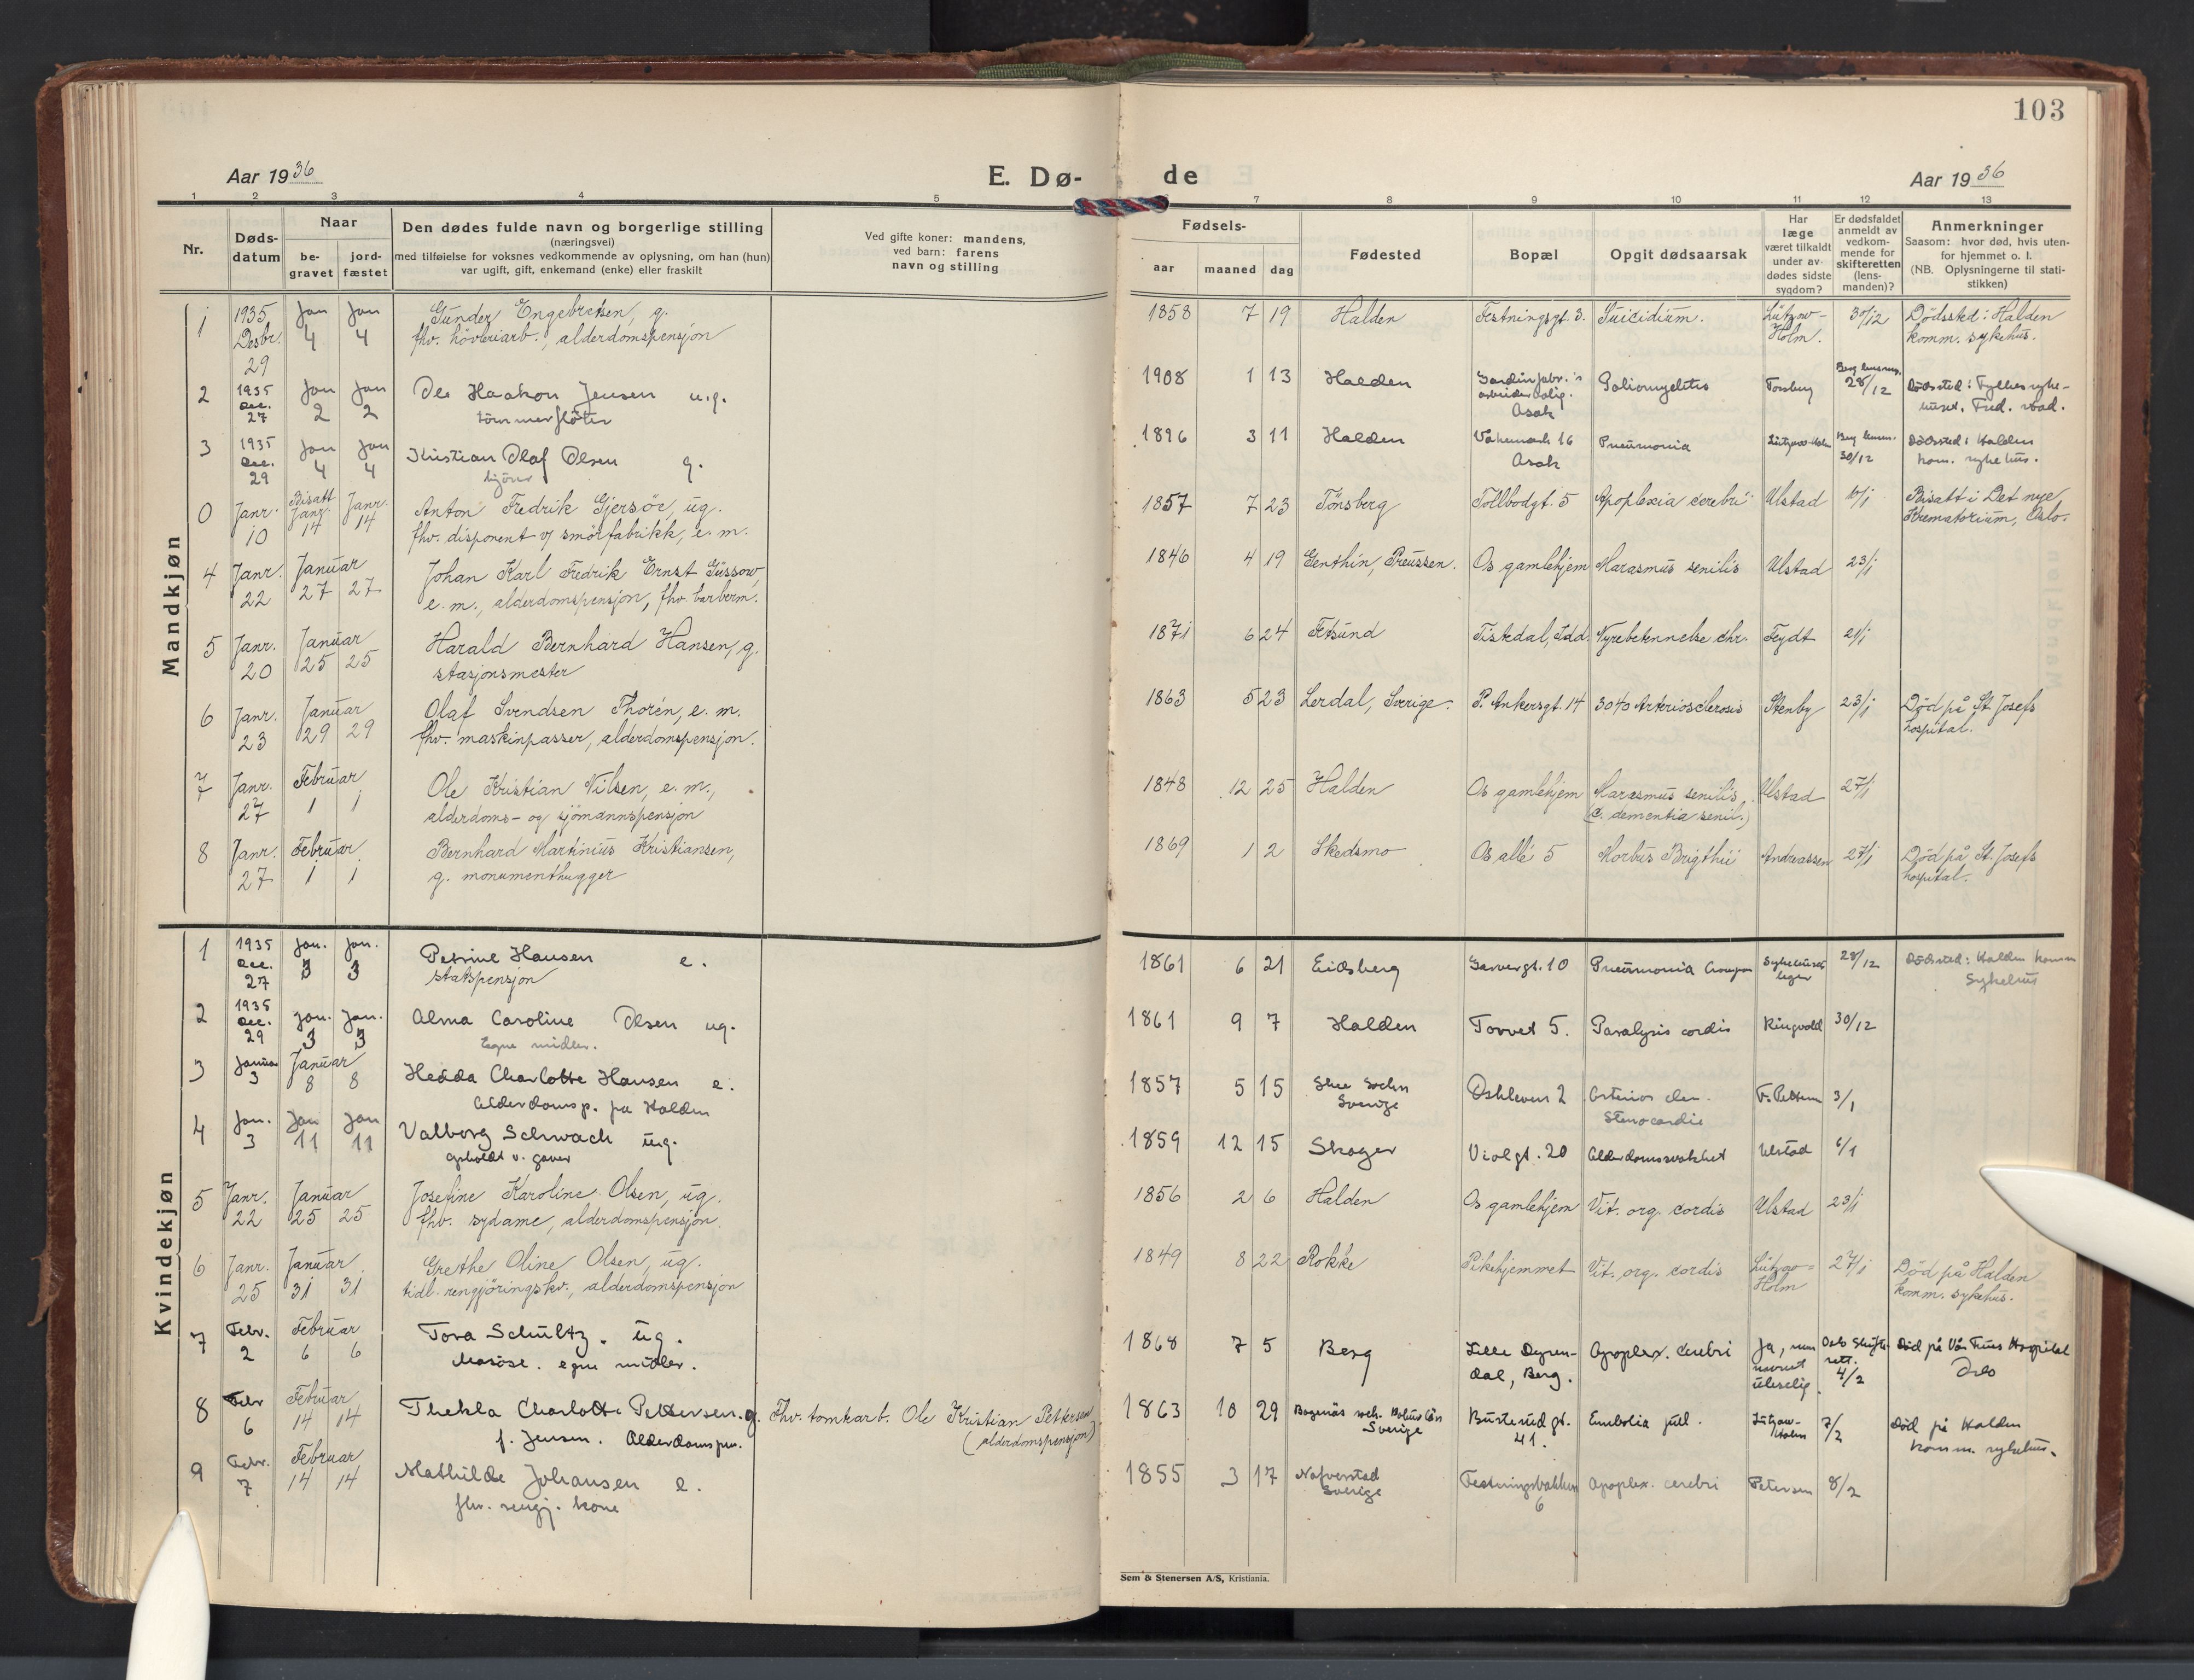 103
Aar 1936
E. Dø-
de
Aar 1936
1 2 3 4 5 7 8 9 10 11 12 13
Nr.
Døds-
datum
Naar
be-
gravet
jord-
fæstet
Den dødes fulde navn og borgerlige stilling
(næringsvei)
med tilføielse for voksnes vedkommende av oplysning, om han (hun)
var ugift, gift, enkemand (enke) eller fraskilt
Ved gifte koner: mandens,
ved barn: farens
navn og stilling
Fødsels-
aar maaned dag
Fødested
Bopæl
Opgit dødsaarsak
Har
læge
været tilkaldt
under av-
dødes sidste
sygdom?
Er dødsfaldet
anmeldt av
vedkom-
mende for
skifteretten
(lens-
manden)?
Anmerkninger
Saasom: hvor død, hvis uten-
for hjemmet o. l.
(NB. Oplysningerne til stati-
stikken)
Mandkjøn
1 1935 Jan Jan Gunder Engebretsen, g. 1858 7 19 Halden Festningsgt. 3. Suicidium. Lützow- 30/12 Dødssted: Halden
Desbr. 4 4 fhv. høvleriarb., alderdomspensjon Holm. komm. sykehus.
29
2 1935 Jan Jan Ole Haakon Jensen u.g. 1908 1 13 Halden Poliomyelitis Torsberg 28/12 Dødssted: Fylkessyke-
Dec. 2 2 tømmerfløter Asak huset. Fred.stad.
27
3 1935 Jan Jan Kristian Olaf Olsen g. 1896 3 11 Halden 16 Pneumonia Lützow-Holm Dødssted: Halden
Dec. 4 4 Asak 30/12 kom. sykehus.
29
0 Janr. Bisatt Janr. Janr. Anton Fredrik Gjersøe, ug. 1857 7 23 Tønsberg Tollbodgt. 5 Apoplexia cerebri Ulstad Bisatt i Det nye
10 14 14 fhv. disponent v/ smørfabrikk, e. m. Krematorium, Oslo.
4 Janr. Januar Johan Karl Fredrik Ernst Güssow, 1846 4 19 Genthin, Preussen. Os gamlehjem Marasmus senilis Ulstad 23/1
22 27 27 e. m., alderdomspensjon, fhv. barberm.
5 Janr. Januar Harald Bernhard Hansen, g. 1871 6 24 Fetsund Tistedal, Idd. Nyrebetennelse chr. Feydt 21/1
20 25 25 stasjonsmester
6 Janr. Januar Olaf Svendsen Thorén, e. m. 1863 5 23 Lerdal, Sverige. P. Ankersgt. 14 Arteriosclerosis Stenby 23/1 Død på St. Josefs
23 29 29 fhv. maskinpasser, alderdomspensjon. hospital.
7 Janr. Februar Ole Kristian Nilsen, e. m., 1848 12 25 Halden Os gamlehjem Marasmus senilis Ulstad 27/1
27 1 1 alderdoms- og sjømannspensjon (c. dementia senil.)
8 Janr. Februar Bernhard Martinius Kristiansen, 1869 1 2 Skedsmo Os allé 5 Morbus Brigthii Andreassen 27/1 Død på St. Josefs
27 1 1 g. monumenthugger hospital.
Kvindekjøn
1 1935 Jan. Jan. Petrine Hansen e. 1861 6 21 Eidsberg Garvergt. 10 Pneumonia Sykehusets 28/12 Dødssted: Halden komm
Dec. 3 3 statspensjon leger Sykehus
27
2 1935 Jan. Jan. Alma Caroline Olsen ug. 1861 9 7 Halden Torvet 5. Paralysis cordis Ringvold 30/12
Dec. 3 3 Egne midler.
29
3 Januar Januar Hedda Charlotte Hansen e. 1857 5 15 Skee sochn Oskleven 2 F. Pettersen 3/1
3 8 8 Alderdomsp. fra Halden Sverige Stenocardie
4 Jan. Jan Jan Valborg Schwach ug. 1859 12 15 Skoger Violgt. 20 Alderdomssvakhet Ulstad 6/1
3 11 11 opholdt v. gaver
5 Janr. Januar Josefine Karoline Olsen, ug. 1856 2 6 Halden Os gamlehjem Vit. org. cordis Ulstad 23/1
22 25 25 fhv. sydame, alderdomspensjon.
6 Janr. Januar Grethe Oline Olsen, ug. 1849 8 22 Rokke Pikehjemmet Vit. org. cordis Lützow= 27/1 Død på Halden
25 31 31 tidl. rengjøringskv., alderdomspensjon Holm komm. sykehus.
7 Febr. Februar Tora Schultz. ug. 1868 7 5 Berg Lille Dyren- Apoplex. cerebri Ja, men Oslo Skifte- Død på Vår Frues Hospital
2 6 6 Masøse. egne midler. dal, Berg. navnet rett. Oslo
uleselig. 4/2
8 Febr Februar Thekla Charlotte Pettersen. g. Fhv. tomtearb. Ole Kristian Pettersen 1863 10 29 Bogenäs soch. Bohuslän Busterudgt. Embolia pul. Lützow- 7/2 Død på Halden
6 14 14 f. Jensen. Alderdomspen. (alderdomspensjon) Sverige 41. Holm komm. sykehus.
9 Febr. Februar Mathilde Johansen e. 1855 3 17 Nafverstad Festningsbakken Apoplex. cerebri Petersen 8/2
7 14 14 fhv. rengj. kone Sverige 6
Sem & Stenersen A/S, Kristiania.